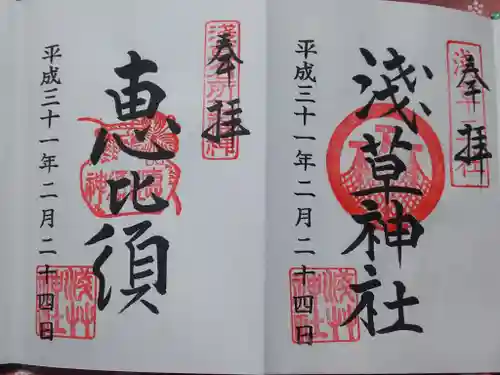 奉拝
浅草神社
平成三十一年二月二十四日
奉拝
恵比須
平成三十一年二月二十四日
浅草神社
浅草神社